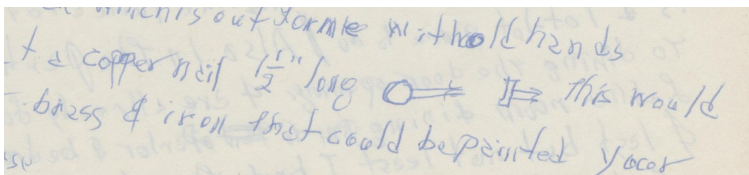 which is out for me with old hands
t a copper nail 1 1/2" long this would
brass & iron that could be painted your